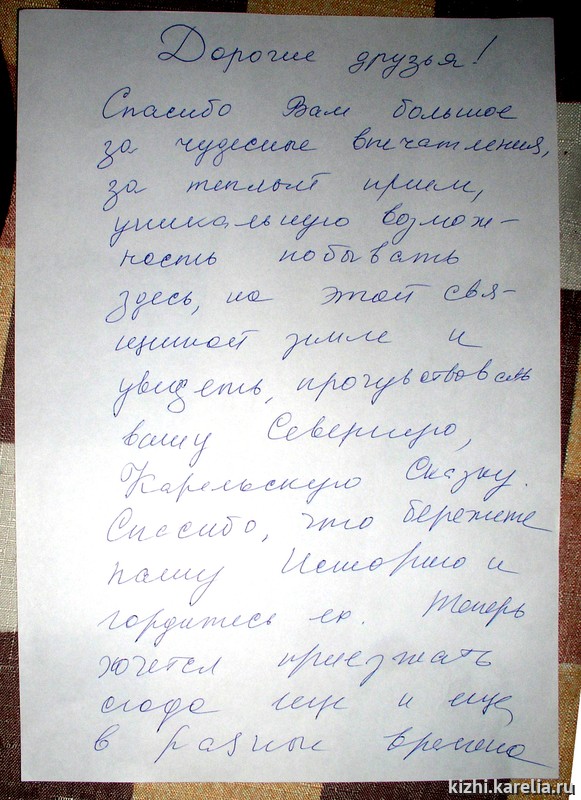 Дорогие друзья!
Спасибо Вам большое
за чудесные впечатления,
за теплый прием,
уникальную возмож-
ность побывать
здесь, на этой свя-
щенной земле и
увидеть, прочувствовать
вашу Северную,
Карельскую Сказку.
Спасибо, что бережете
нашу Историю и
гордитесь ею. Теперь
хочется приезжать
сюда еще и еще
в разные времена
kizhi.karelia.ru